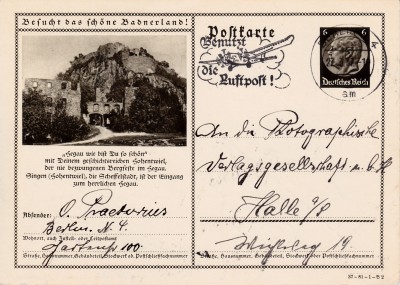 Besucht das schöne Badnerland!
Postkarte
Benutzt
die
Luftpost!
6 6
Deutsches Reich
„Hegau wie bist Du so schön“
mit Deinem geschichtsreichen Hohentwiel,
der nie bezwungenen Bergfeste im Hegau.
Singen (Hohentwiel), die Scheffelstadt, ist der Eingang
zum herrlichen Hegau.
An die Photographische
Verlagsgesellschaft m.b.H.
Halle a/S
19.
Absender: O. Praetorius
Berlin N. 4.
Wohnort, auch Zustell- oder Leitpostamt
100.
Straße, Hausnummer, Gebäudeteil, Stockwerk oder Postschließfachnummer
Straße, Hausnummer, Gebäudeteil, Stockwerk oder Postschließfachnummer